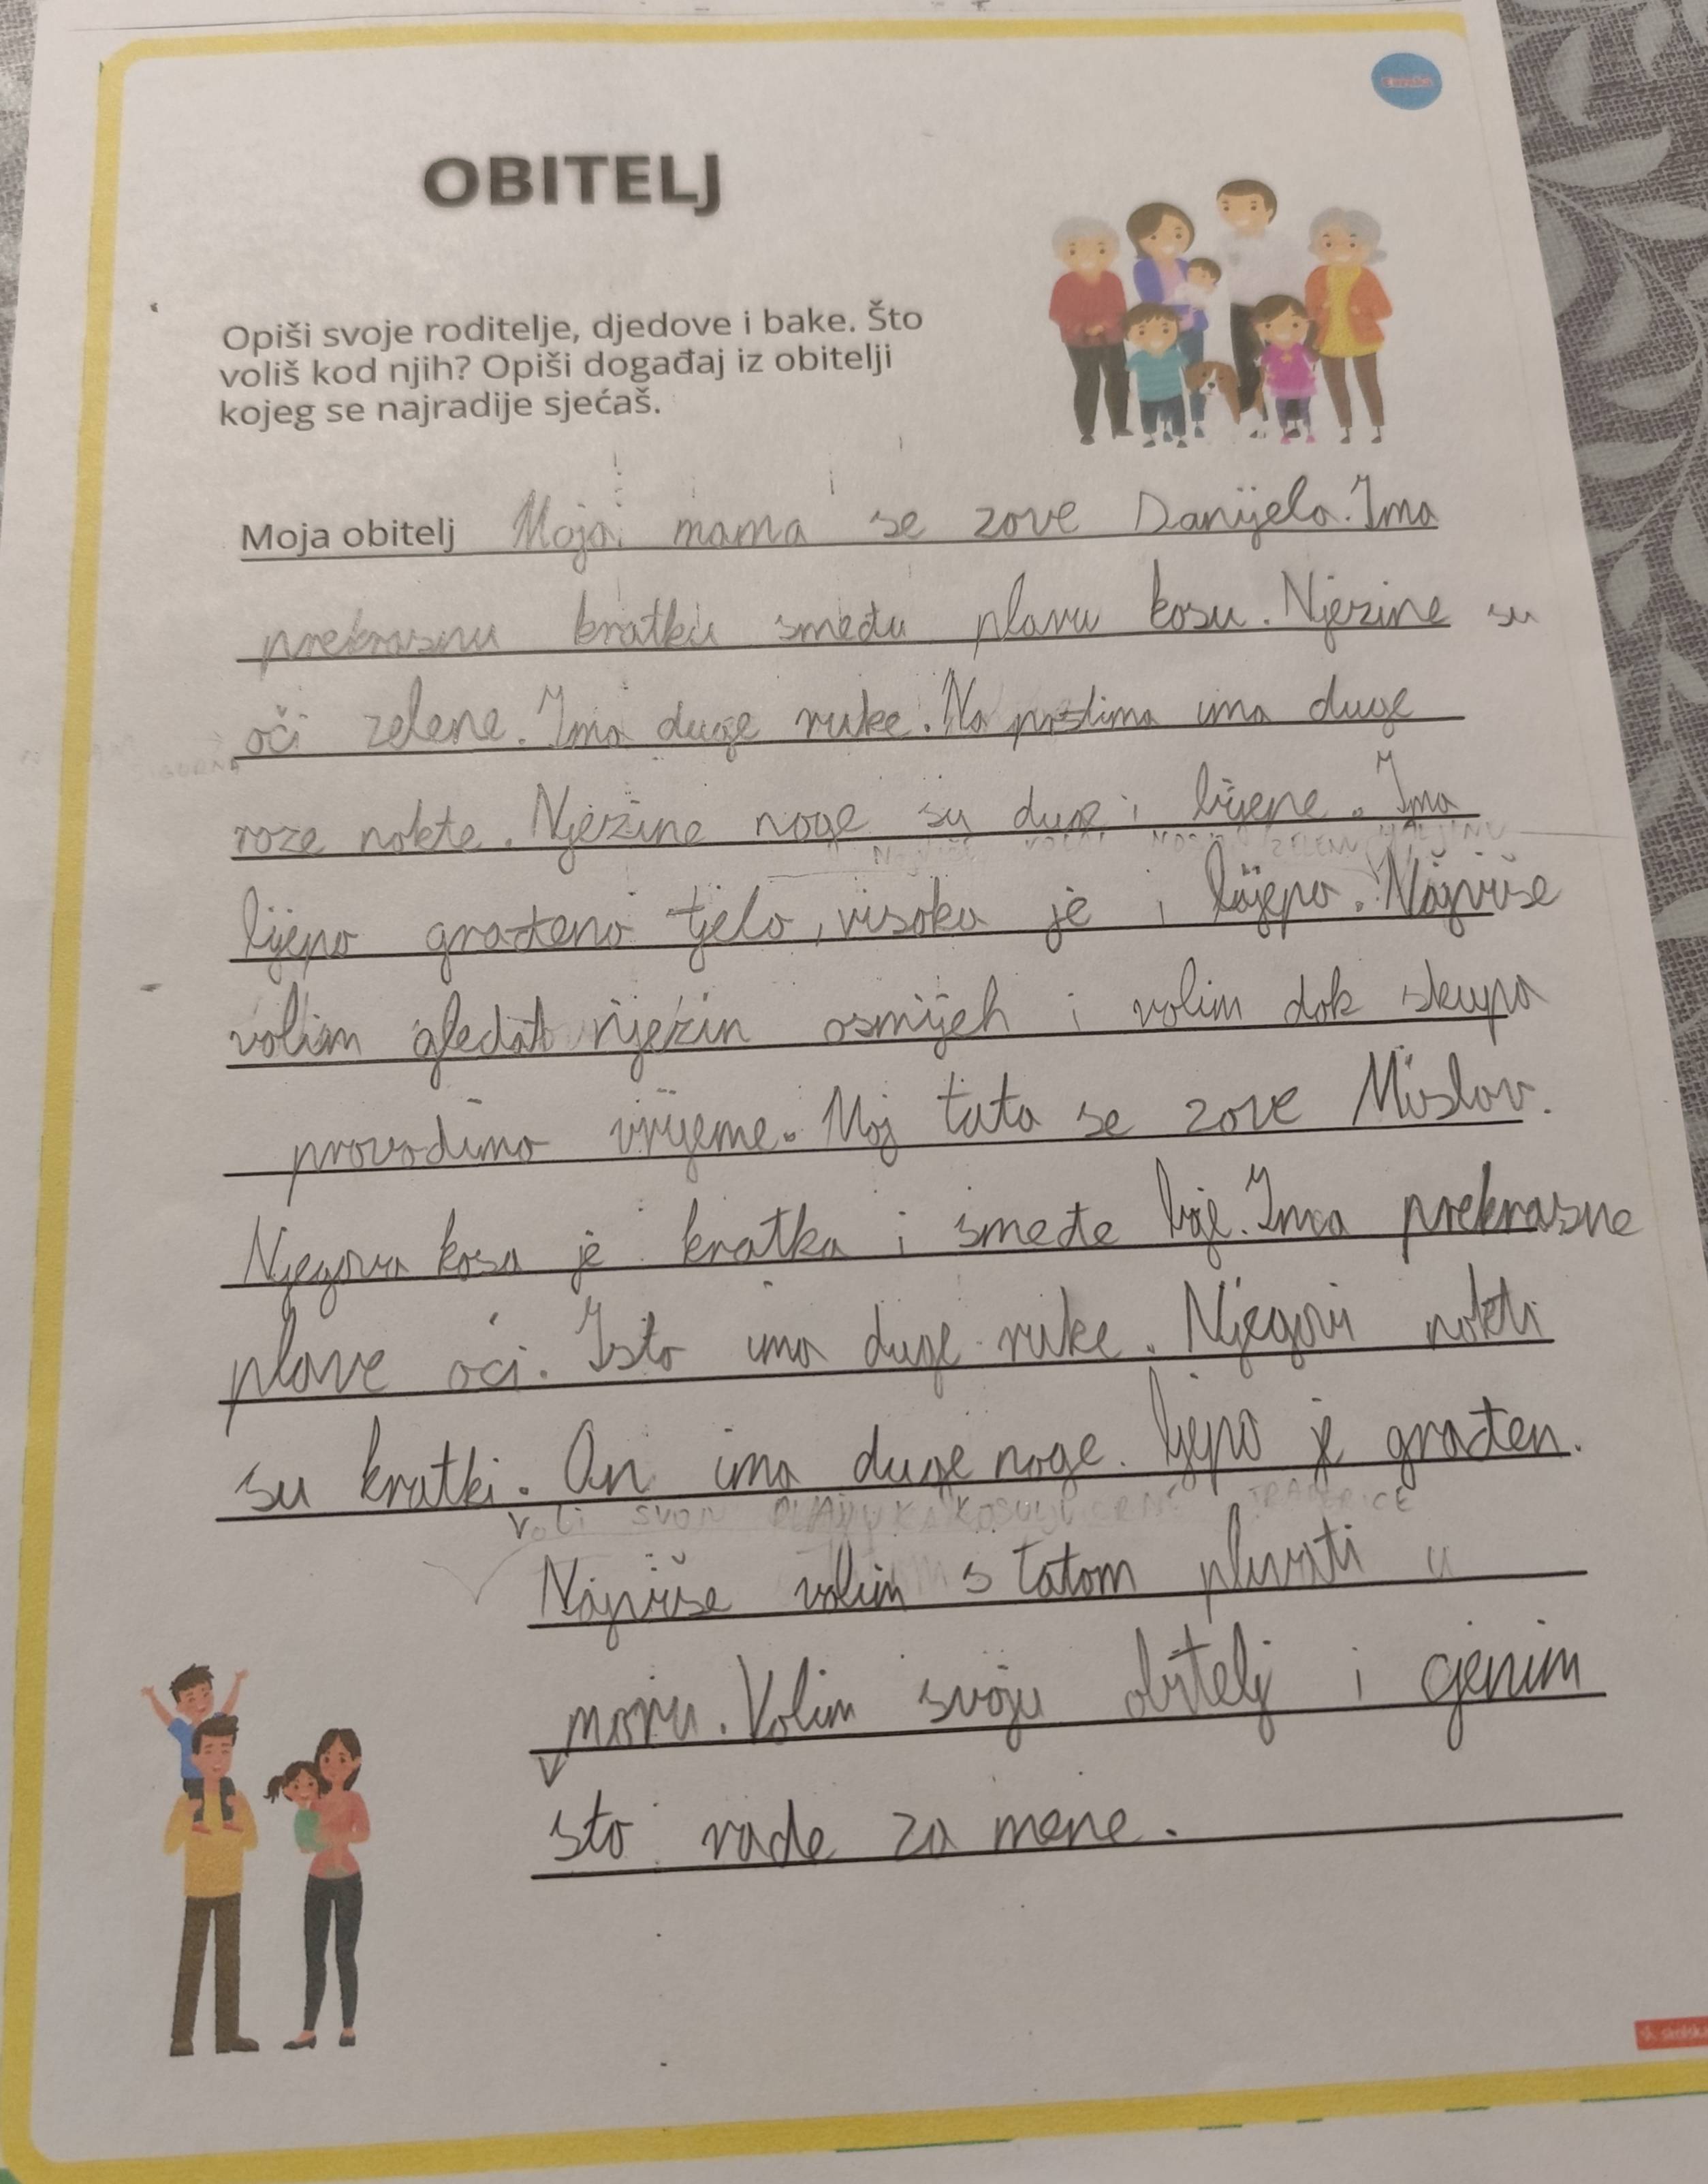 OBITELJ
Opiši svoje roditelje, djedove i bake. Što
voliš kod njih? Opiši događaj iz obitelji
kojeg se najradije sjećaš.
Moja obitelj Moja mama se zove Danijela. Ima
prekrasnu kratku smeđu plavu kosu. Njezine su
oči zelene. Ima duge ruke. Na prstima ima duge
roze nokte. Njezine noge su duge i lijepe. Ima
ZELENU HALJINU
lijepo građeno tjelo, visoka je i lijepa. Najviše
volim gledat njezin osmijeh i volim dok skupa
provodimo vrijeme. Moj tata se zove Mislav.
Njegova kosa je kratka i smeđe boje. Ima prekrasne
plave oči. Isto ima duge ruke. Njegovi nokti
su kratki. On ima duge noge. ljepo je građen.
VOLI SVOJU KOŠULJU CRNE TRAPERICE
Najviše volim s tatom plivati u
moru. Volim svoju obitelj i cjenim
sto rade za mene.